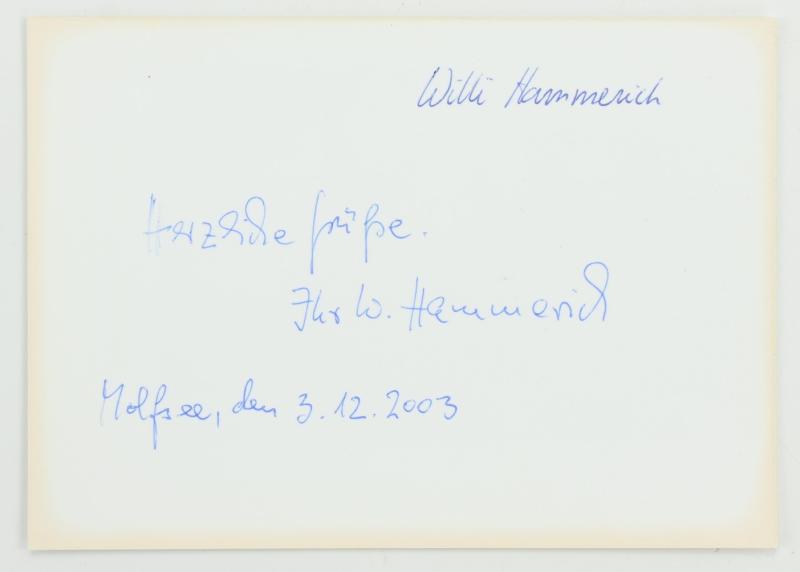 Willi Hammerich
Herzliche Grüße.
Ihr W. Hammerich
Molfsee, den 3.12.2003